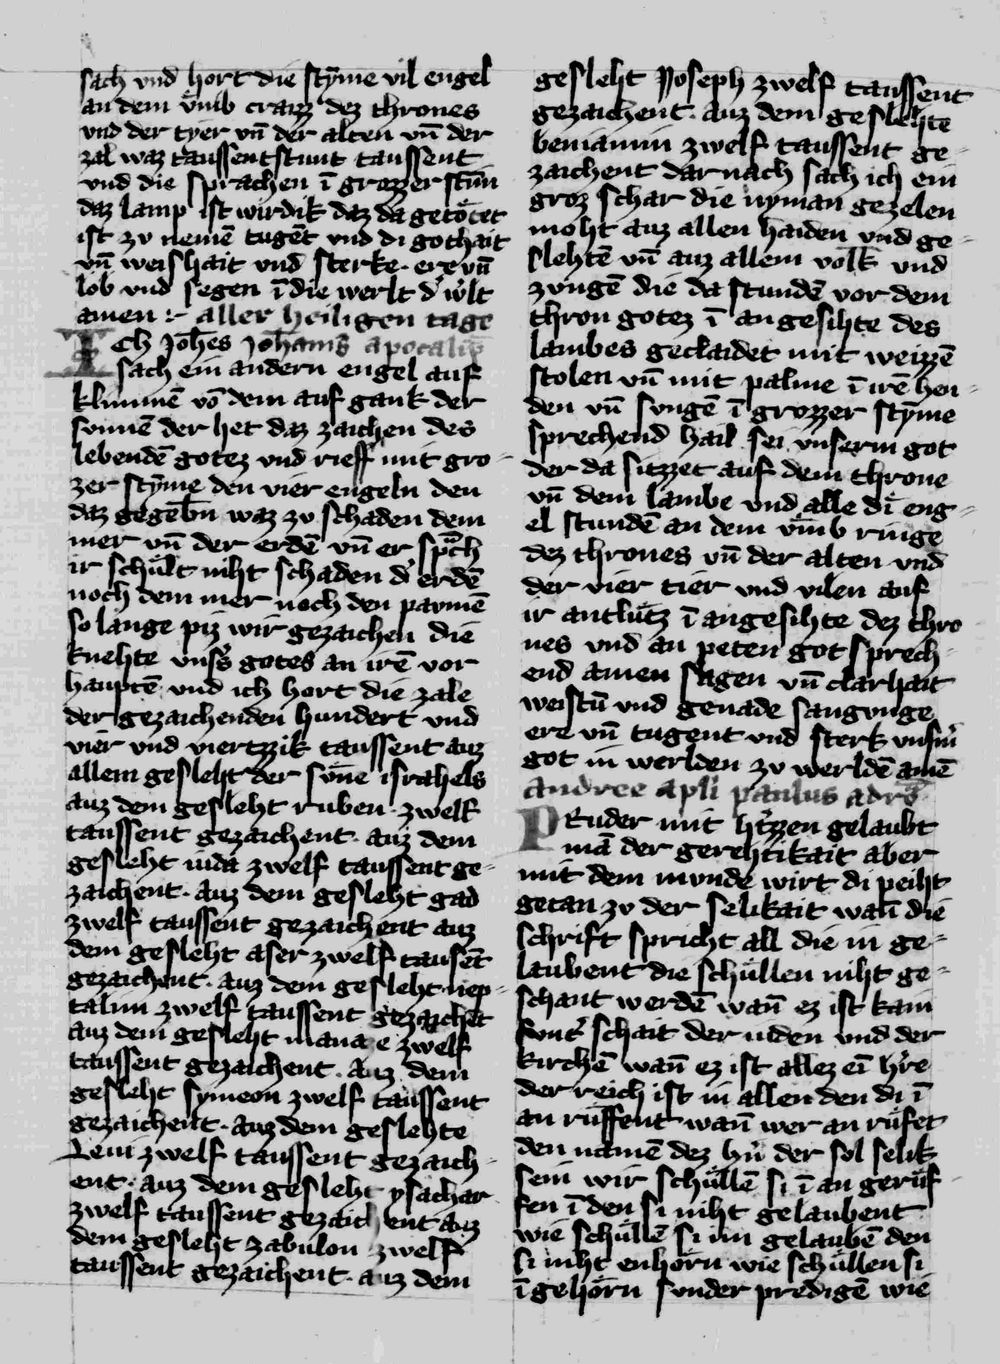 sach vnd hort die sty̅me vil engel
an dem vͤmb craizz dez thrones
vnd der tyer vn̅ der alten vn̅ der
zal waz taussentstunt taussent
vnd die sprachen i̅ grozzer stim̅
daz lamp ist wirdik daz da getoͤtet
ist zv neme̅ tuge̅t vnd di gothait
vn̅ weishait vnd sterke · ere vn̅
lob vnd segen i̅ die werlt d' w'lt
amen :· aller heiligen tage
Ich Joh̅es Joha̅nis apocalip̅
sach ein andern engel auf
klimme̅ vo̅ dem auf gank der
sunne̅ der het daz zaichen des
lebende̅ gotez vnd rieff mit gro-
zer sty̅me den vier engeln den
daz gegeb̅n waz zv schaden dem
mer vn̅ der erde̅ vn̅ er sp̅ch
ir schuͤlt niht schaden d' erde̅
noch dem mer noch den pavme̅
so lange piz wir gezaichen die
knehte vns's gotes an ire̅ vor
haupte̅ vnd ich hort die zale
der gezaichenden hundert vnd
vier vnd viertzzik taussent auz
allem gesleht der su̅ne israhels
auz dem gesleht ruben · zwelf
taussent gezaichent · auz dem
gesleht iuda zwelf taussent ge-
zaichent · auz dem gesleht gad
zwelf taussent gezaichent auz
dem gesleht aser zwelf tause̅t
gezaichent · auz dem gesleht nep-
talim zwelf taussent gezaiche̅t
auz dem gesleht manaze zwelf
taussent gezaichent · Auz dem
gesleht symeon zwelf taussent
gezaichent · auz dem geslehte
Leui zwelf taussent gezaich-
ent · auz dem gesleht ysachar
zwelf taussent gezaichent auz
dem gesleht zabulon zwelf
taussent gezaichent · auz dem
gesleht Joseph zwelf taussent
gezaichent · auz dem geslehte
beniamin zwelf taussent ge-
zaichent dar nach sach ich ein
groz schar die nyman gezelen
moht auz allen haiden vnd ge-
slehte̅ vn̅ auz allem volk vnd
zvnge̅ die da stunde̅ vor dem
thron gotez i̅ angesihte des
lambes geclaidet mit weizze̅
stolen vn̅ mit palme i̅ ire̅ hen-
den vn̅ sunge̅ i̅ grozzer sty̅me
sprechend hail sei vnserm got
der da sitzzet auf dem throne
vn̅ dem lambe vnd alle di eng-
el stunde̅ an dem vͤmb ringe
dez thrones vn̅ der alten vnd
der vier tier vnd vilen auf
ir antluͤtz i̅ angesihte dez thro
nes vnd an peten got sprech-
end amen segen vn̅ clarhait
weistu̅ vnd genade sangvnge
ere vn̅ tugent vnd sterk vnsm'
got in werlden zv werlde̅ ame̅
andree apli paulus ad ro̅
PRuder mit h'tzzen gelaubt
ma̅ der gerehtikait aber
mit dem munde wirt di peiht
getan zv der selikait wan̅ die
schrift spricht all die in ge-
laubent die schuͤllen niht ge-
schant werde̅ wan̅ ez ist kain
sunt' schait der iuden vnd der
kirche̅ wan̅ ez ist allez ei̅ h're
der reich ist in allen den di i̅
an ruͤffent wan̅ wer an ruͤfet
den name̅ dez h'n der sol selik
sein wir schuͤlle̅ si i̅ an geruͤf-
fen i̅ den si niht gelaubent
wie schuͤlle̅ si im gelaube̅ den
si niht enhoͤrn wie schuͤllen si
i̅ gehoͤrn sunder predige̅ wie